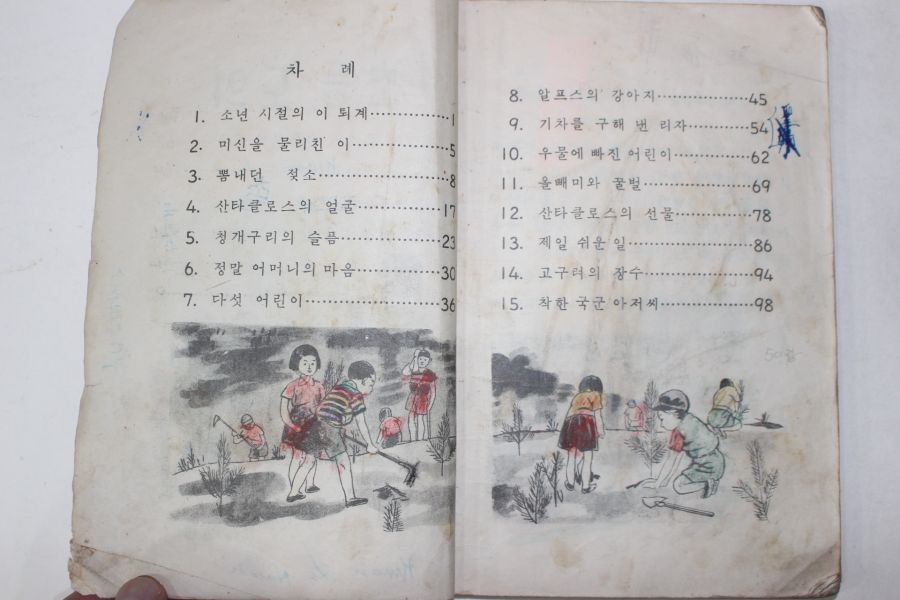 차 례
1. 소년 시절의 이 퇴계 1
2. 미신을 물리친 이 5
3. 뽐내던 젖소 8
4. 산타클로스의 얼굴 17
5. 청개구리의 슬픔 23
6. 정말 어머니의 마음 30
7. 다섯 어린이 36
8. 알프스의 강아지 45
9. 기차를 구해 낸 리자 54
10. 우물에 빠진 어린이 62
11. 올빼미와 꿀벌 69
12. 산타클로스의 선물 78
13. 제일 쉬운 일 86
14. 고구려의 장수 94
15. 착한 국군 아저씨 98